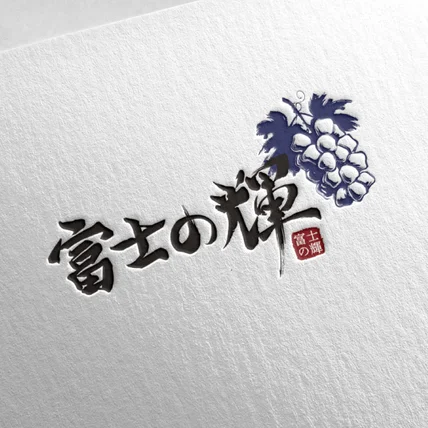 富士の輝
富士
の輝